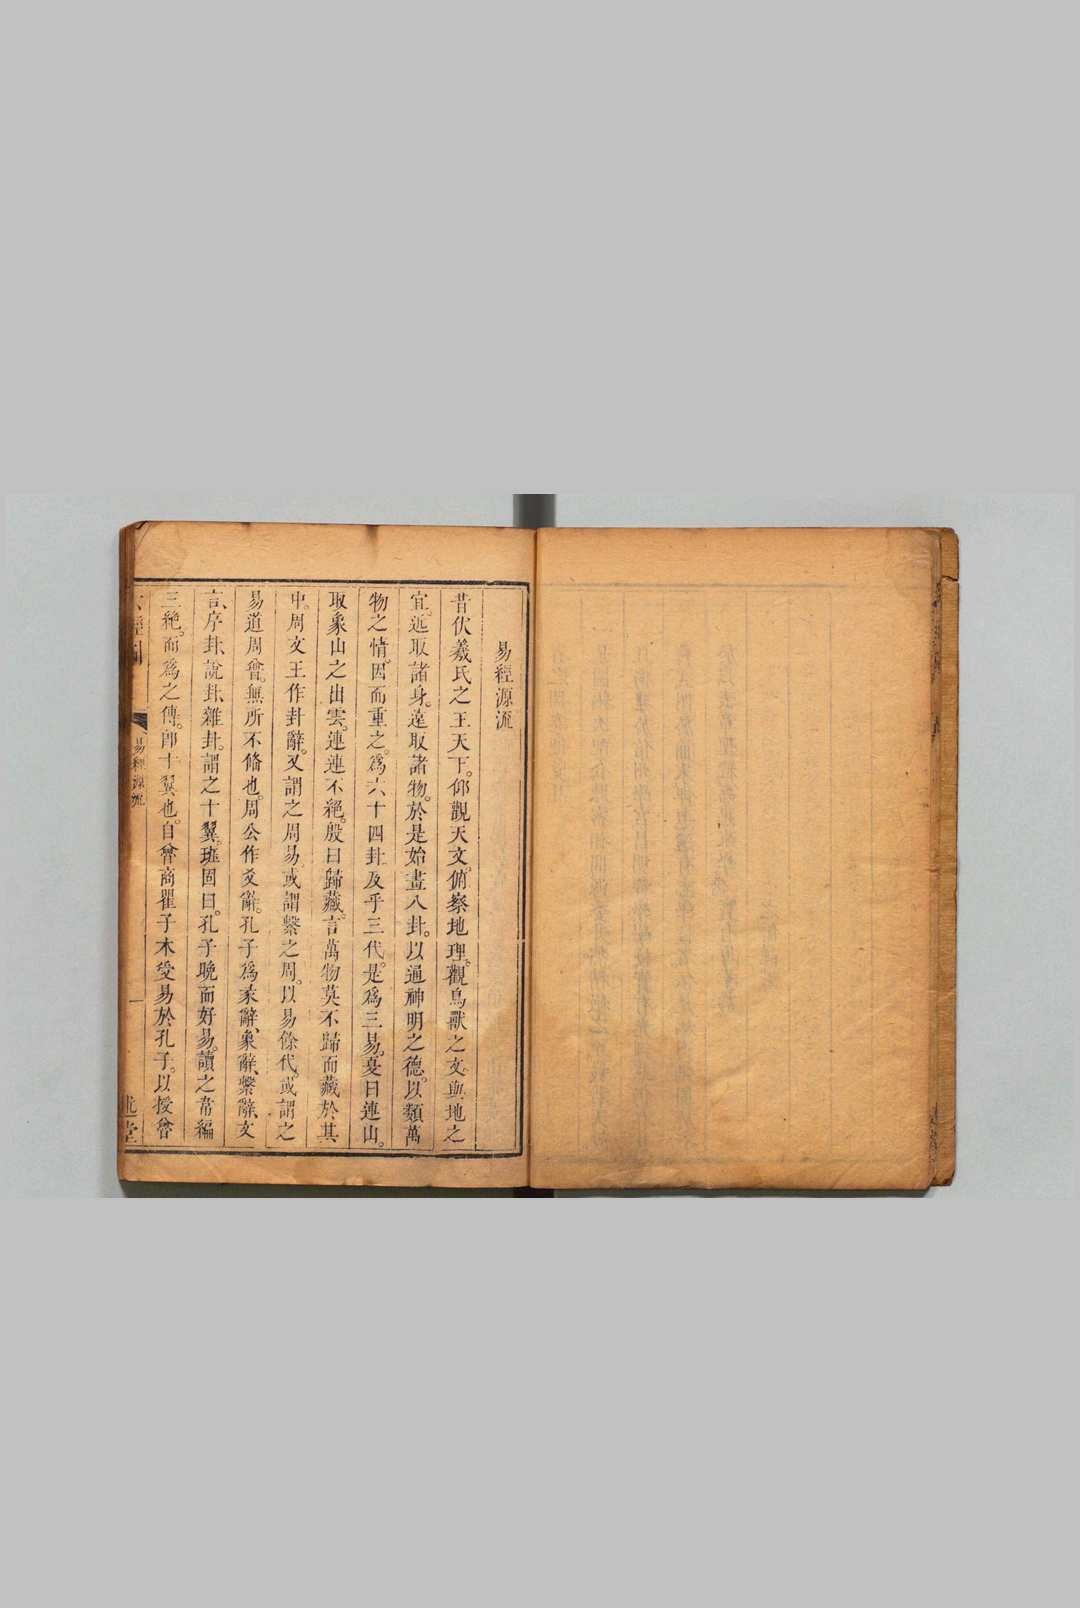 易經源流
昔伏羲氏之王天下。仰觀天文。俯察地理。觀鳥獸之文。與地之
宜。近取諸身。遠取諸物。於是始畫八卦。以通神明之德。以類萬
物之情。因而重之。爲六十四卦。及乎三代。是爲三易。夏曰連山。
取象山之出雲。連連不絕。殷曰歸藏。言萬物莫不歸而藏於其
中。周文王作卦辭。又謂之周易。或謂繫之周。以易餘代。或謂之
易道周普。無所不備也。周公作爻辭。孔子爲彖辭、象辭、繫辭、文
言、序卦、說卦、雜卦。謂之十翼。班固曰。孔子晚而好易。讀之韋編
三絕。而爲之傳。即十翼也。自魯商瞿子木受易於孔子。以授魯
六經圖
易經源流
一
述堂